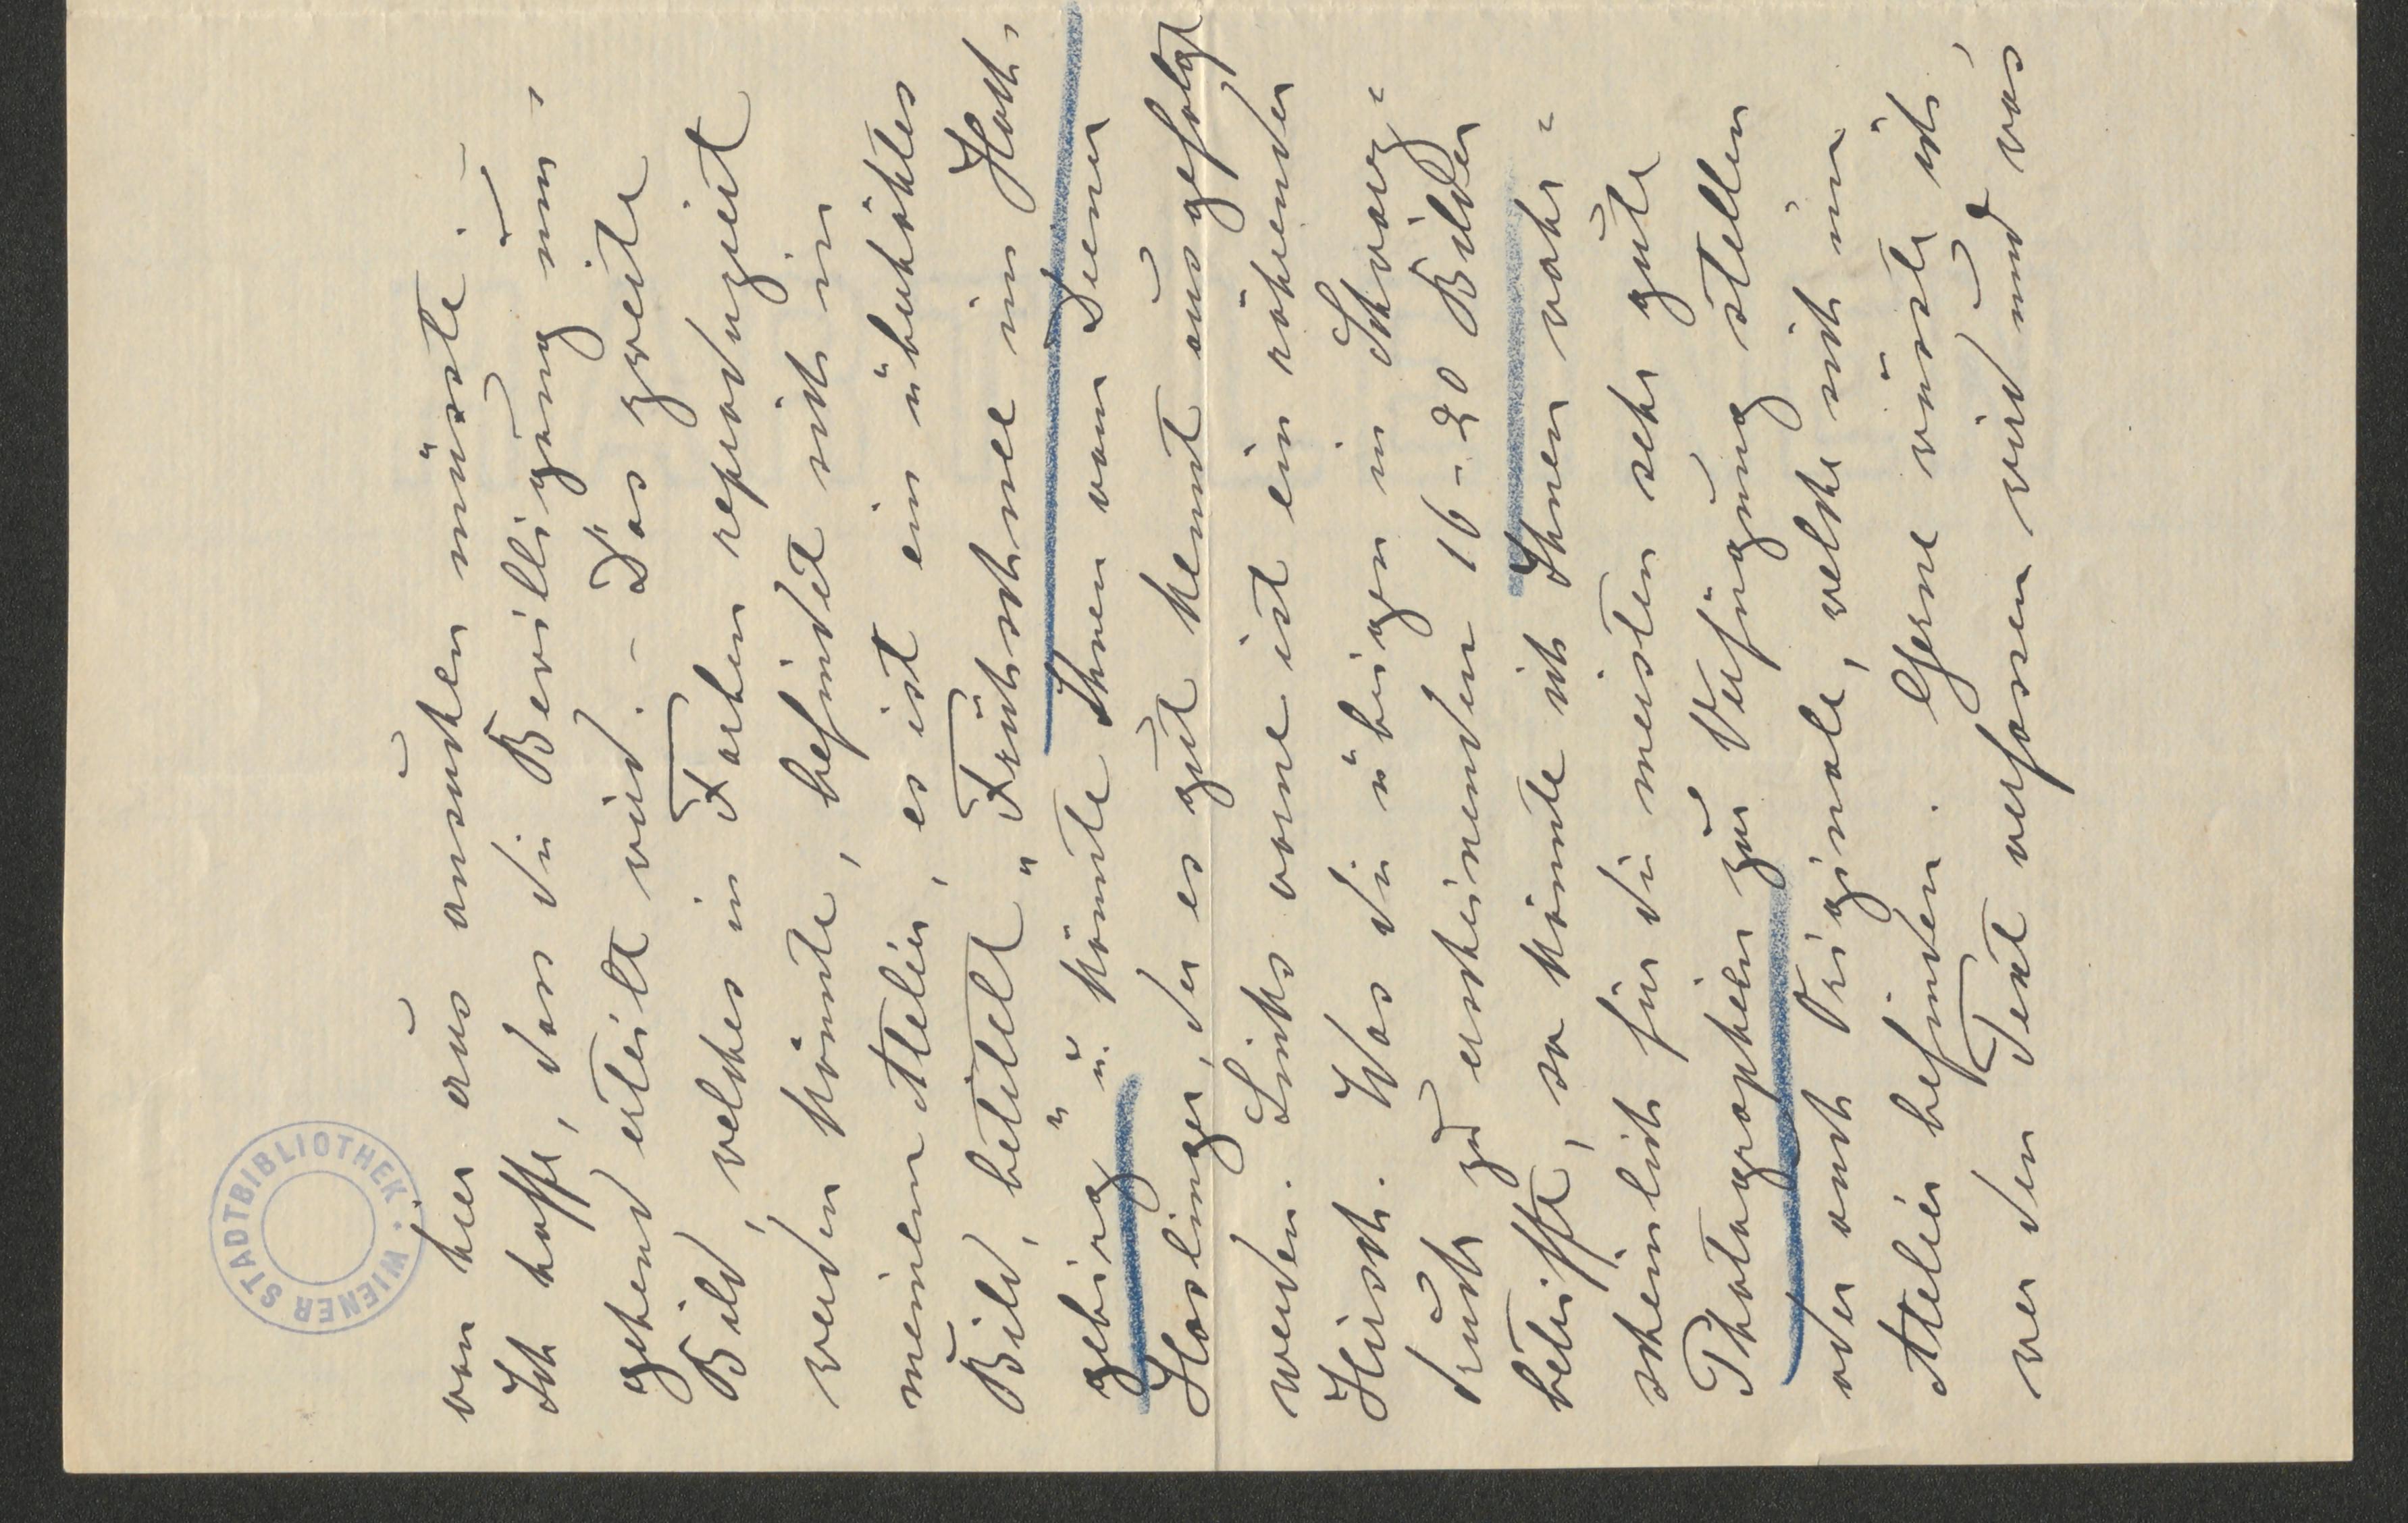 von hier aus ansuchen müsste. –
Ich hoffe, dass die Bewilligung um-
gehend erteilt wird. – Das zweite
Bild, welches in Farben reproduziert
werden könnte, befindet sich in
meinem Atelier, es ist ein überhöhtes
Bild, betitelt „Frühschnee im Hoch-
gebirg" u. könnte Ihnen vom Diener
Haslinger, der es gut kennt ausgefolgt
werden. Links vorne ist ein röhrender
Hirsch. Was die übrigen in Schwarz=
druck zu erscheinenden 16-20 Bilder
betrifft, so könnte ich Ihnen wahr=
scheinlich für die meisten sehr gute
Photographien zur Verfügung stellen
oder auch Originale, welche sich im
Atelier befinden. Gerne wüsste ich,
wer den Text verfassen wird und was
WIENER STADTBIBLIOTHEK